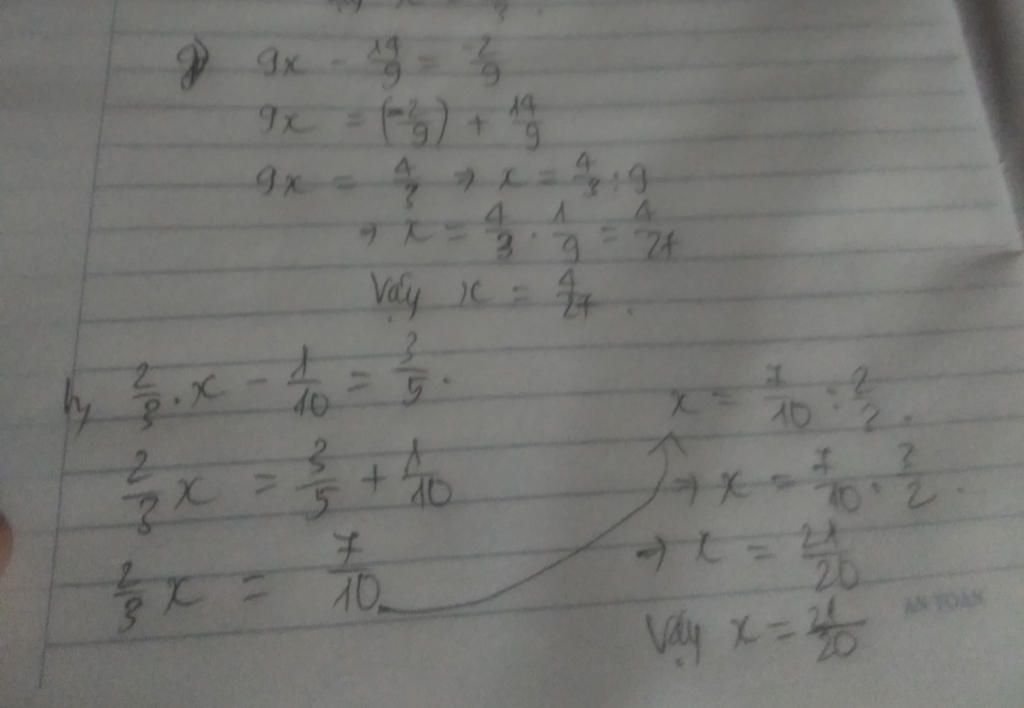 g) 9x - 14/9 = -2/9
9x = (-2/9) + 14/9
9x = 4/3 → x = 4/3 : 9
→ x = 4/3 . 1/9 = 4/27
Vậy x = 4/27.
h, 2/3 . x - 1/10 = 3/5.
2/3 x = 3/5 + 1/10
2/3 x = 7/10
x = 7/10 : 2/3.
→ x = 7/10 . 3/2.
→ x = 21/20
Vậy x = 21/20
AN TOAN